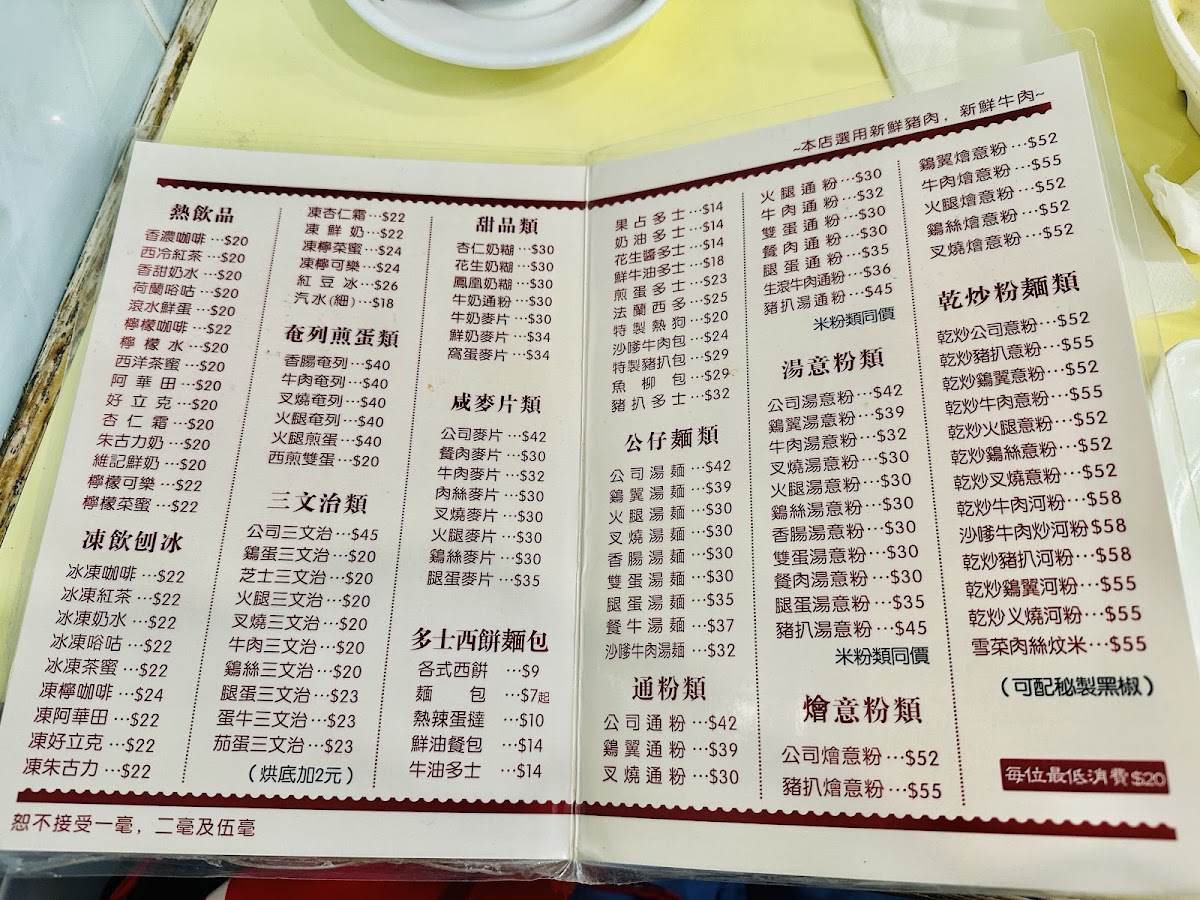 熱飲品
香濃咖啡…$20
西冷紅茶…$20
香甜奶水…$20
荷蘭唂咕…$20
滾水鮮蛋…$20
檸檬咖啡…$22
檸檬水…$20
西洋茶蜜…$20
阿華田…$20
好立克…$20
杏仁霜…$20
朱古力奶…$20
維記鮮奶…$20
檸檬可樂…$22
檸檬菜蜜…$22
凍飲刨冰
冰凍咖啡…$22
冰凍紅茶…$22
冰凍奶水…$22
冰凍唂咕…$22
冰凍茶蜜…$22
凍檸咖啡…$24
凍阿華田…$22
凍好立克…$22
凍朱古力…$22
凍杏仁霜…$22
凍鮮奶…$22
凍檸菜蜜…$24
凍檸可樂…$24
紅豆冰…$26
汽水(細)…$18
奄列煎蛋類
香腸奄列…$40
牛肉奄列…$40
叉燒奄列…$40
火腿奄列…$40
火腿煎蛋…$40
西煎雙蛋…$20
三文治類
公司三文治…$45
鷄蛋三文治…$20
芝士三文治…$20
火腿三文治…$20
叉燒三文治…$20
牛肉三文治…$20
鷄絲三文治…$20
腿蛋三文治…$23
蛋牛三文治…$23
茄蛋三文治…$23
(烘底加2元)
甜品類
杏仁奶糊…$30
花生奶糊…$30
鳳凰奶糊…$30
牛奶通粉…$30
牛奶麥片…$30
鮮奶麥片…$34
窩蛋麥片…$34
咸麥片類
公司麥片…$42
餐肉麥片…$30
牛肉麥片…$32
肉絲麥片…$30
叉燒麥片…$30
火腿麥片…$30
鷄絲麥片…$30
腿蛋麥片…$35
多士西餅麵包
各式西餅…$9
麵包…$7起
熱辣蛋撻…$10
鮮油餐包…$14
牛油多士…$14
恕不接受一毫，二毫及伍毫
~本店選用新鮮豬肉，新鮮牛肉~
果占多士…$14
奶油多士…$14
花生醬多士…$14
鮮牛油多士…$18
煎蛋多士…$23
法蘭西多…$25
特製熱狗…$20
沙嗲牛肉包…$24
特製豬扒包…$29
魚柳包…$29
豬扒多士…$32
公仔麵類
公司湯麵…$42
鷄翼湯麵…$39
火腿湯麵…$30
叉燒湯麵…$30
香腸湯麵…$30
雙蛋湯麵…$30
腿蛋湯麵…$35
餐牛湯麵…$37
沙嗲牛肉湯麵…$32
通粉類
公司通粉…$42
鷄翼通粉…$39
叉燒通粉…$30
火腿通粉…$30
牛肉通粉…$32
雙蛋通粉…$30
餐肉通粉…$30
腿蛋通粉…$35
生滾牛肉通粉…$36
豬扒湯通粉…$45
米粉類同價
湯意粉類
公司湯意粉…$42
鷄翼湯意粉…$39
牛肉湯意粉…$32
叉燒湯意粉…$30
火腿湯意粉…$30
鷄絲湯意粉…$30
香腸湯意粉…$30
雙蛋湯意粉…$30
餐肉湯意粉…$30
腿蛋湯意粉…$35
豬扒湯意粉…$45
米粉類同價
燴意粉類
公司燴意粉…$52
豬扒燴意粉…$55
鷄翼燴意粉…$52
牛肉燴意粉…$55
火腿燴意粉…$52
鷄絲燴意粉…$52
叉燒燴意粉…$52
乾炒粉麵類
乾炒公司意粉…$52
乾炒豬扒意粉…$55
乾炒鷄翼意粉…$52
乾炒牛肉意粉…$55
乾炒火腿意粉…$52
乾炒鷄絲意粉…$52
乾炒叉燒意粉…$52
乾炒牛肉河粉…$58
沙嗲牛肉炒河粉$58
乾炒豬扒河粉…$58
乾炒鷄翼河粉…$55
乾炒义燒河粉…$55
雪菜肉絲炆米…$55
(可配秘製黑椒)
每位最低消費$20